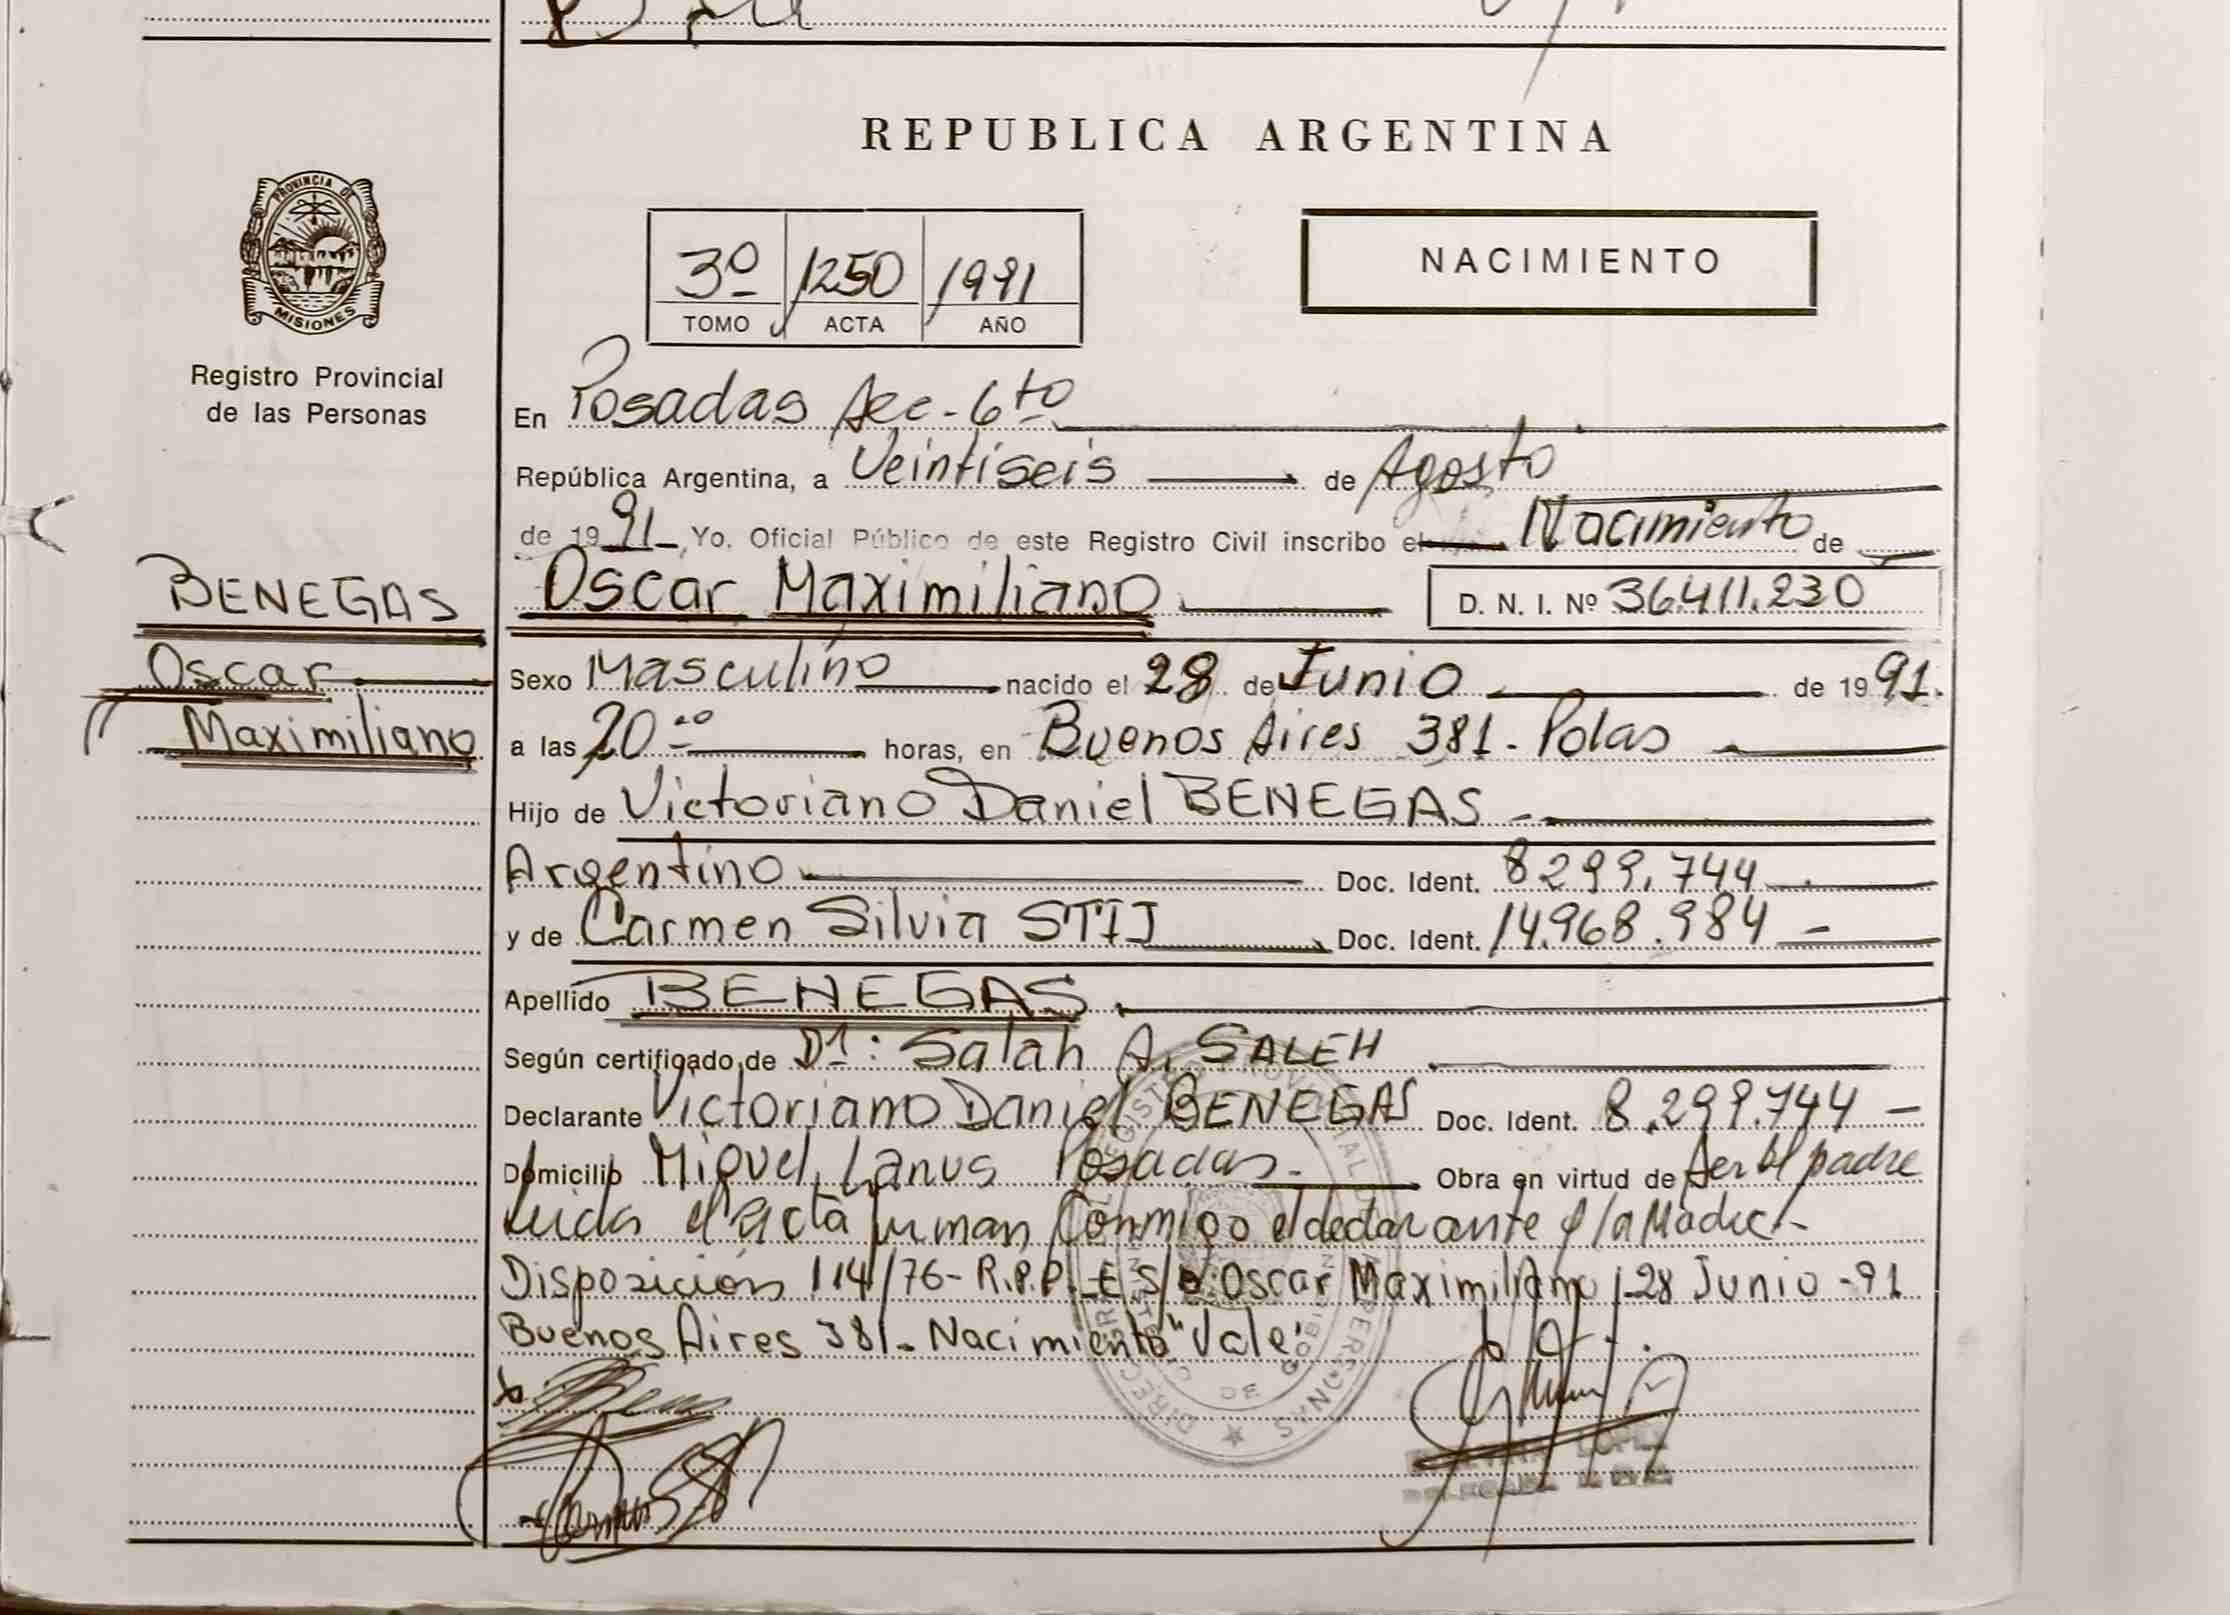 REPUBLICA ARGENTINA
PROVINCIA DE
MISIONES
Registro Provincial
de las Personas
3º 1250 1991
TOMO ACTA AÑO
NACIMIENTO
En Posadas Sec-6to
República Argentina, a Veintiseis de Agosto
de 1991, Yo. Oficial Público de este Registro Civil inscribo el Nacimiento de
BENEGAS
Oscar
Maximiliano
Oscar Maximiliano D. N. I. Nº 36.411.230
Sexo Masculino nacido el 28 de Junio de 1991.
a las 20 horas, en Buenos Aires 381- Pdas
Hijo de Victoriano Daniel BENEGAS
Argentino Doc. Ident. 8299.744
y de Carmen Silvia STIJ Doc. Ident. 14.968.984
Apellido BENEGAS
Según certificado de Dr: Salah A. SALEH
Declarante Victoriano Daniel BENEGAS Doc. Ident. 8.299.744
Domicilio Miguel Lanus Posadas. Obra en virtud de ser el padre
Leida el acta firman Conmigo el declarante y la Madre-
Disposición 114/76- R.P.P.-E S/r: Oscar Maximiliano 28 Junio -91
Buenos Aires 381- Nacimiento "Vale".